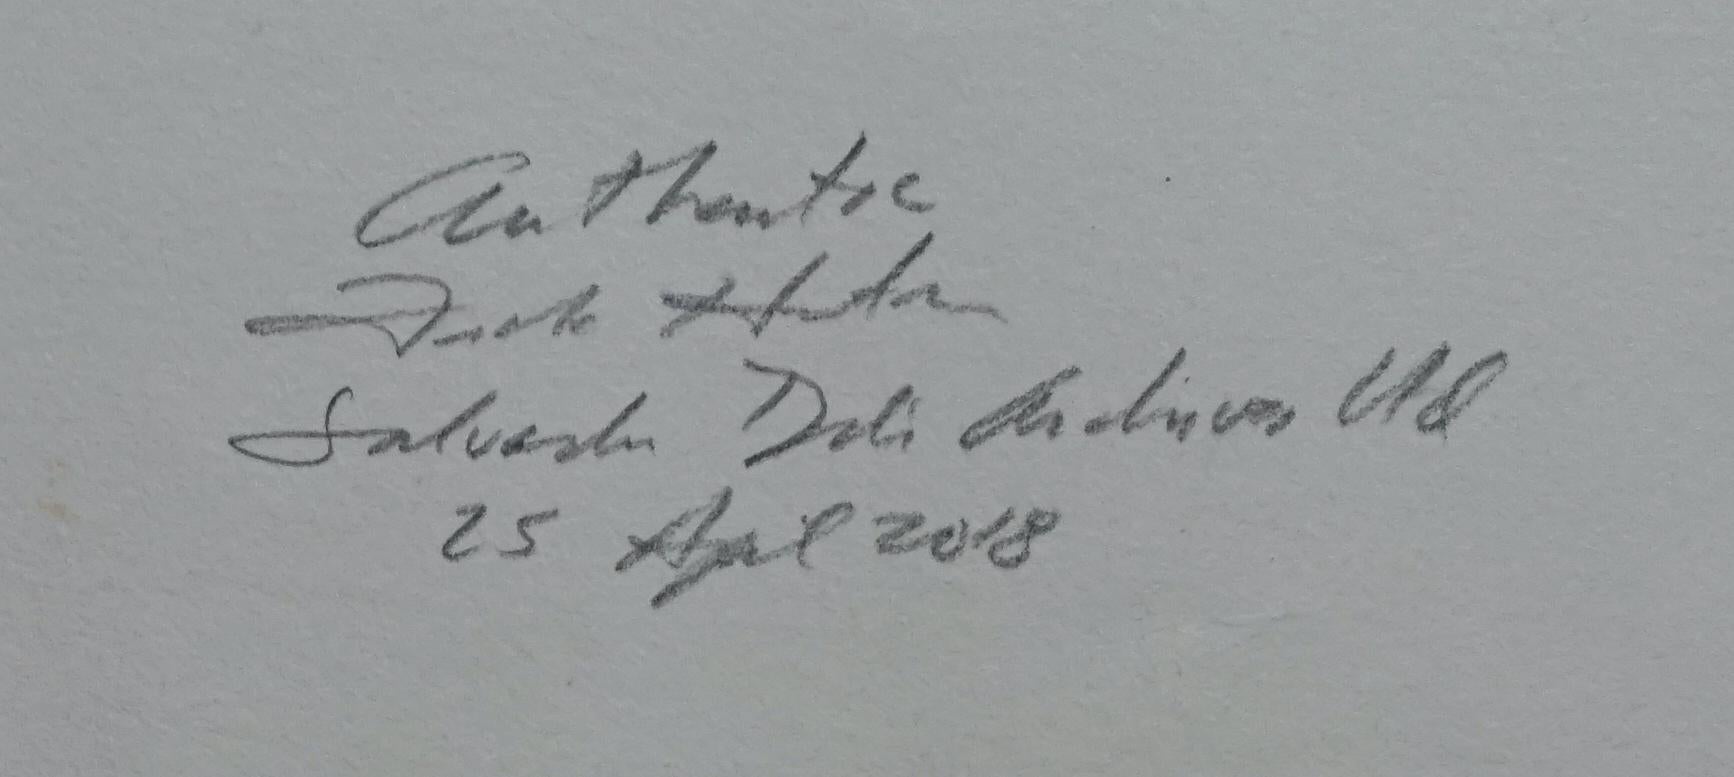 Authentic
Frank Hunter
Salvador Dali Archives Ltd
25 April 2018